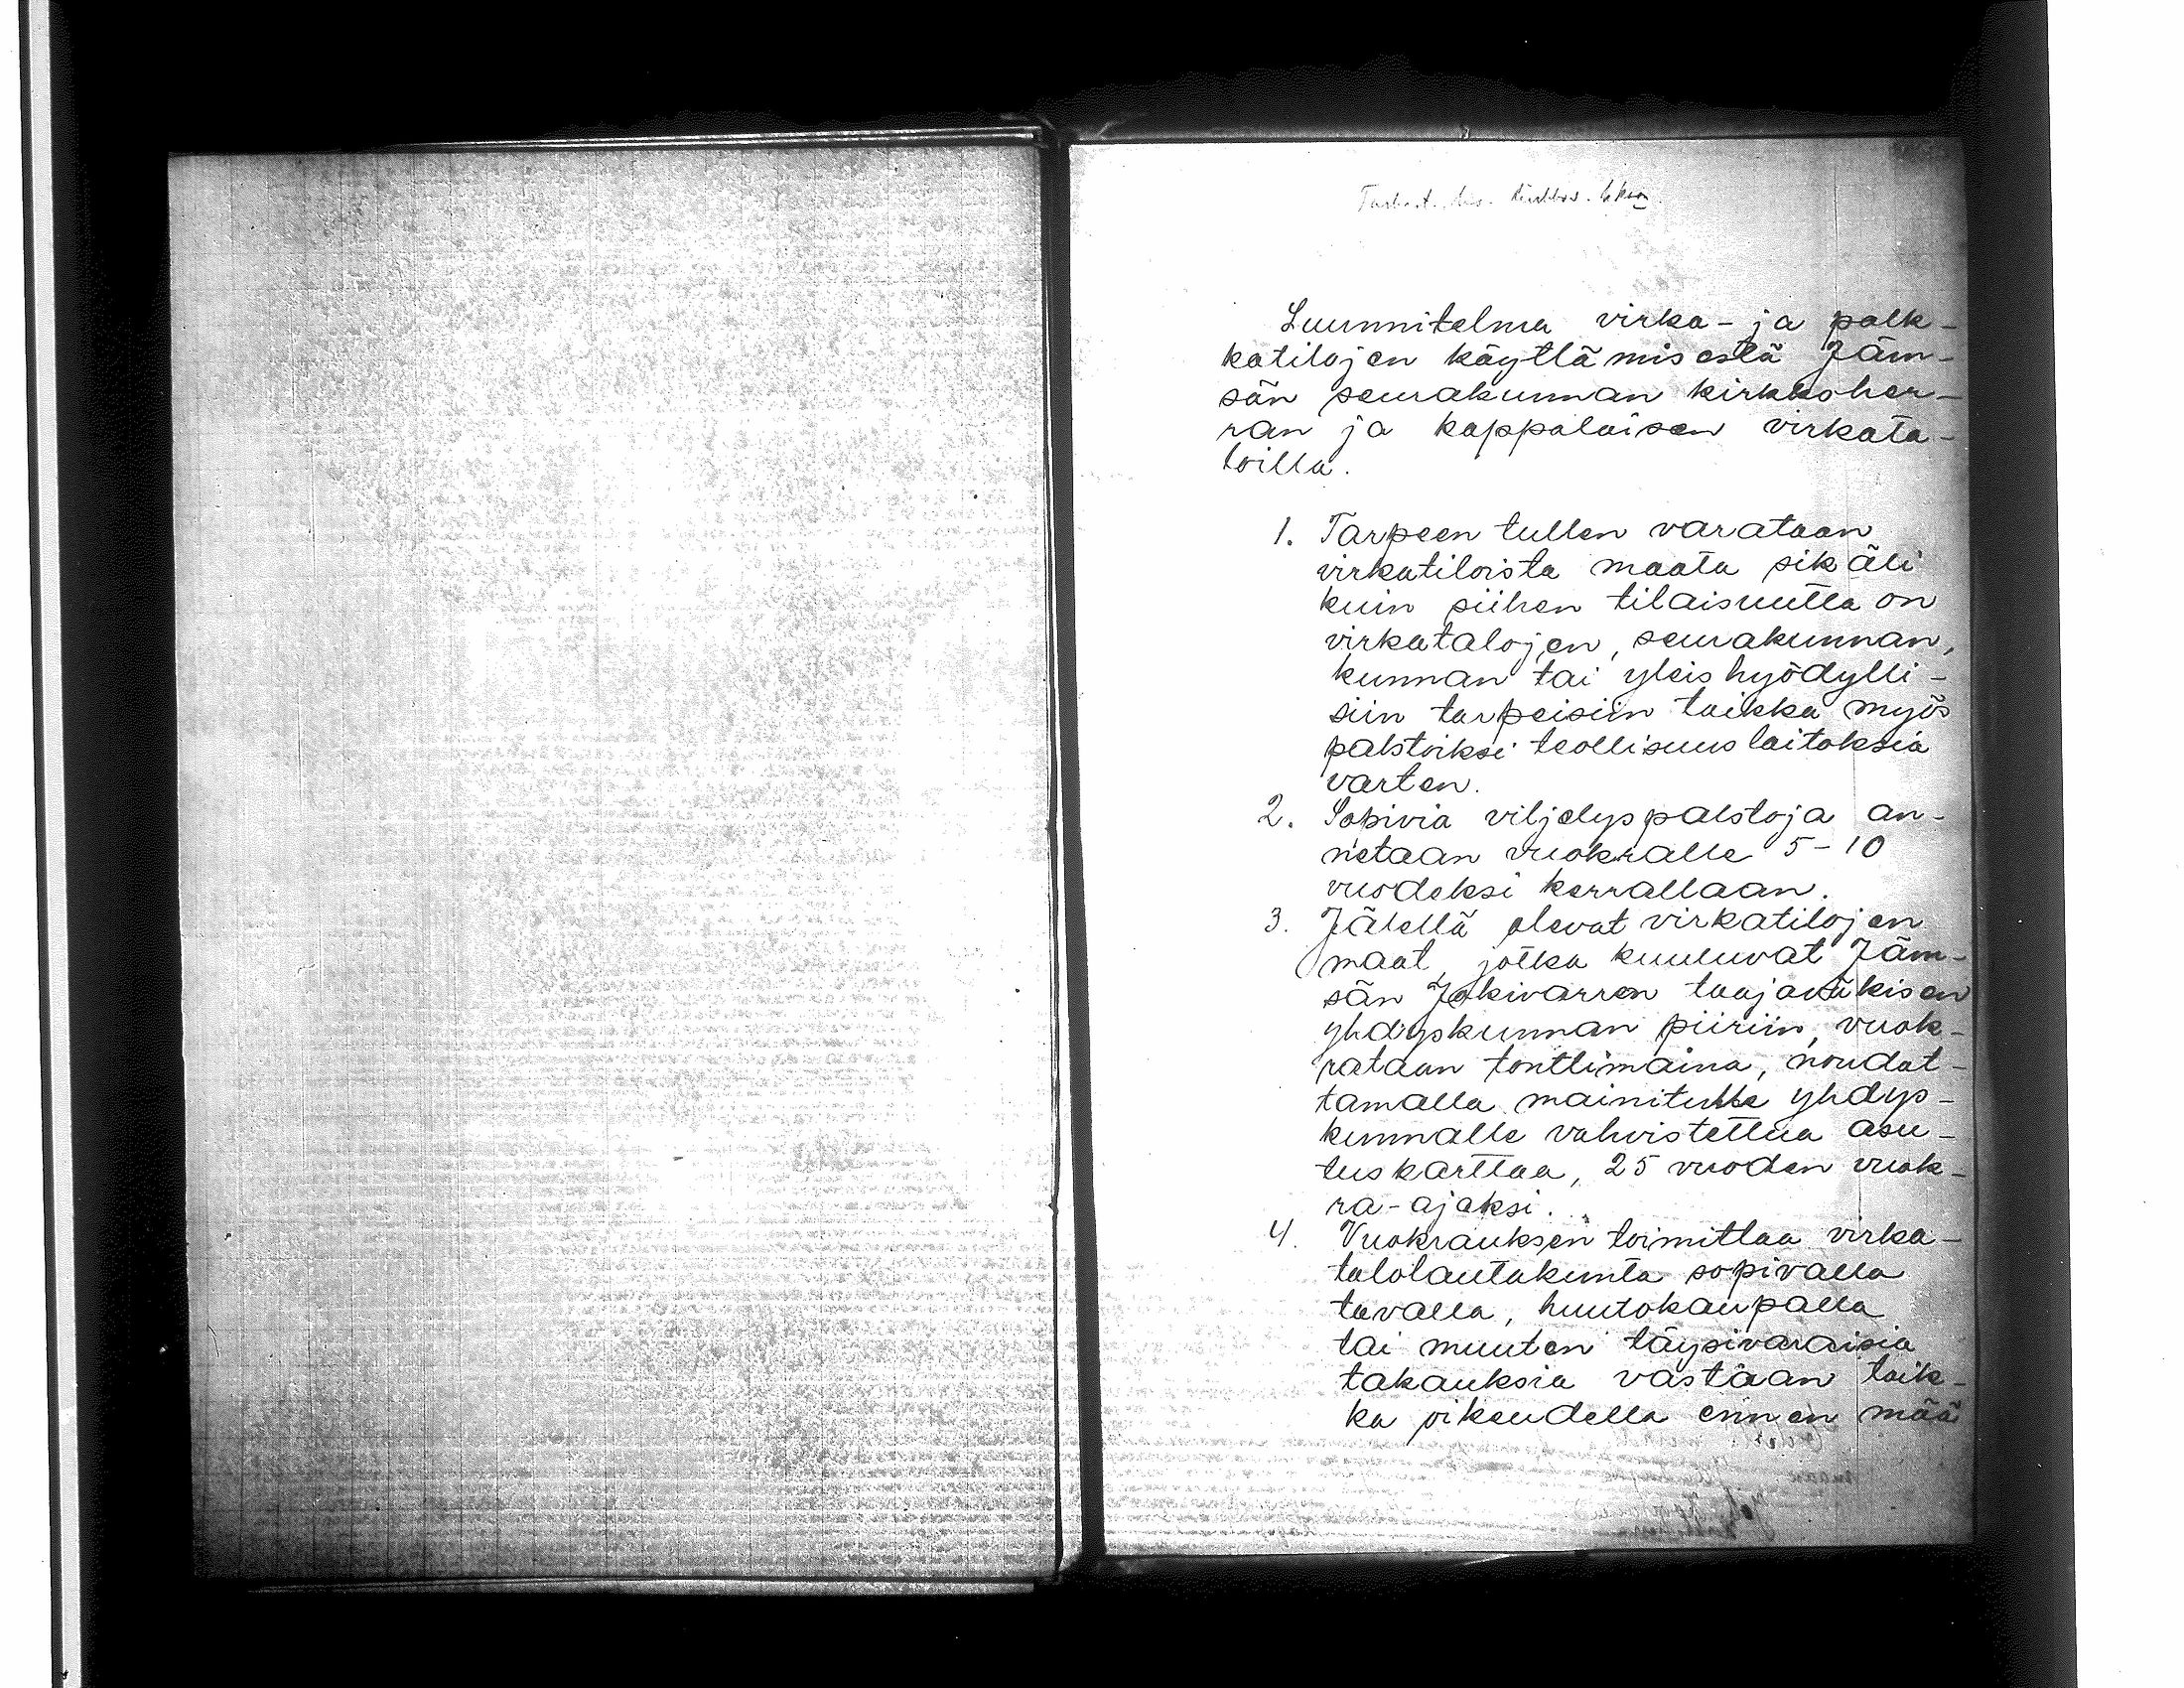 Suunnitelma virka- ja palk-
katilojen käyttämisestä Jäm-
sän seurakunnan kirkkoher-
ran ja kappalaisen virkata-
loilla.
1. Tarpeen tullen varataan
virkatiloista maata sikäli
kuin siihen tilaisuutta on
virkatalojen, seurakunnan,
kunnan tai yleishyödylli-
siin tarpeisiin taikka myös
palstoiksi teollisuuslaitoksia
varten.
2. Sopivia viljelyspalstoja an-
netaan vuokralle 5-10
vuodeksi kerrallaan.
3. Jälellä olevat virkatilojen
maat, jotka kuuluvat Jäm-
sän Jokivarren taajaväkisen
yhdyskunnan piiriin, vuok-
rataan tonttimaina, noudat-
tamalla mainitulle yhdys-
kunnalle vahvistettua asu-
tuskarttaa, 25 vuoden vuok-
ra-ajaksi.
4. Vuokrauksen toimittaa virka-
talolautakunta sopivalla
tavalla, huutokaupalla
tai muuten täysivaraisia
takauksia vastaan taik-
ka oikeudella ennen mää